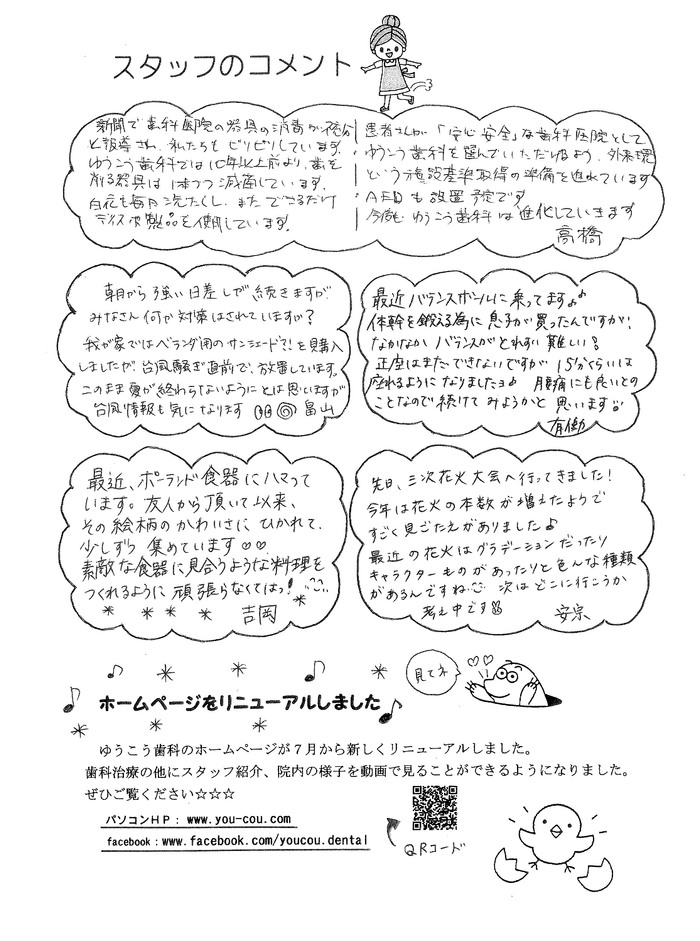 スタッフのコメント
新聞で歯科医院の器具の消毒が不充分
と報導され、私たちも ピリピリしています。
ゆうこう歯科では10年以上前より、歯を
削る器具は1本づつ滅菌しています。
白衣も毎日洗たくし、また できるだけ
ディスポ製品を使用しています。
患者さんが「安心 安全」な歯科医院として
ゆうこう歯科を選んでいただけるよう、外来環
という施設基準取得の準備を進めています
AEDも設置予定です
今後も ゆうこう歯科は進化していきます
高橋
朝から強い日差しが続きますが
みなさん何か対策はされていますか?
我が家ではベランダ用のサンシェード!を購入
しましたが、台風騒ぎ直前で、放置しています。
このまま夏が終わらないようにとは思いますが
台風情報も気になります 畠山
最近バランスボールに乗ってます♪♪
体幹を鍛える為に息子が買ったんですが、
なかなか バランスがとれずい難しい!
正座はまだできないですが 15分くらいは
座れるようになりましたョ♪ 腰痛にも良いとの
ことなので続けて みようかと 思います
有働
最近、ポーランド食器にハマって
います。友人から頂いて以来、
その絵柄のかわいさに ひかれて、
少しずつ 集めています♡♡
素敵な食器に見合うような料理を
つくれるように 頑張らなくてはっ!
吉岡
先日、三次花火大会へ行ってきました!
今年は花火の本数が増えたようで
すごく見ごたえがありました♪
最近の花火はグラデーションだったり
キャラクターものがあったりと色んな種類
があるんですね 次はどこに行こうか
考え中です 安宗
見てネ
ホームページをリニューアルしました
ゆうこう歯科のホームページが7月から新しくリニューアルしました。
歯科治療の他にスタッフ紹介、院内の様子を動画で見ることができるようになりました。
ぜひご覧ください☆☆☆
パソコンHP：www.you-cou.com
facebook：www.facebook.com/youcou.dental
QRコード